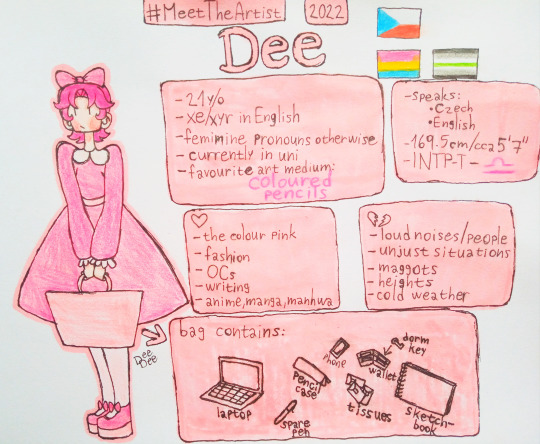 #MeetTheArtist
2022
Dee
-21y/o
-xe/xyr in English
-feminine pronouns otherwise
-currently in uni
-favourite art medium:
coloured
pencils
-speaks:
•Czech
•English
-169.5cm/cca5'7"
-INTP-T-♎
-the colour pink
-fashion
-OCs
-writing
-anime,manga,manhwa
-loud noises/people
-unjust situations
-maggots
-heights
-cold weather
bag contains:
laptop
pencil
case
spare
pen
phone
wallet
dorm
key
tissues
sketch-
book
Dee
Dee